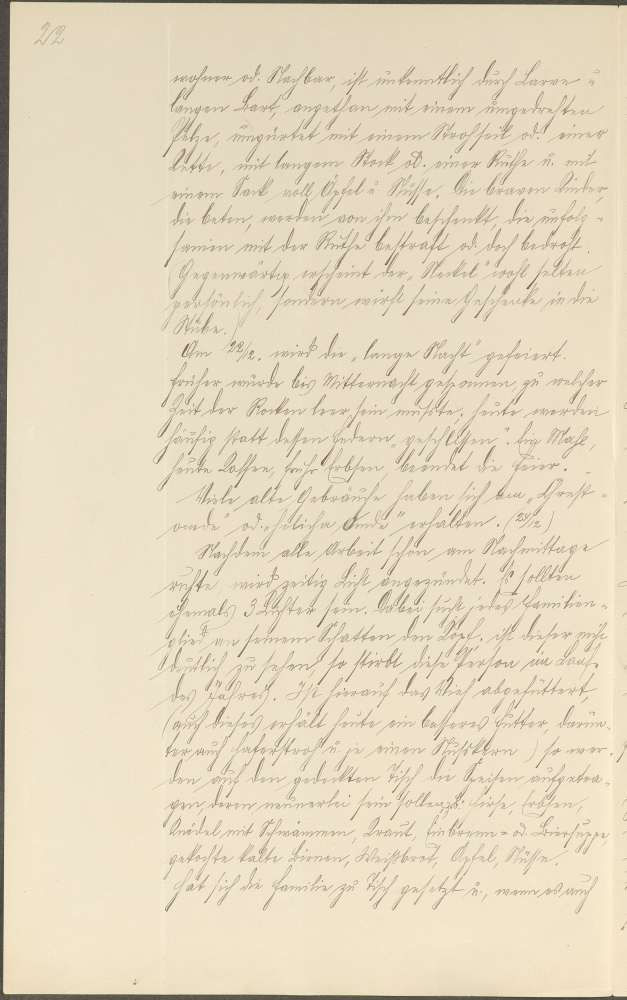 22
wohner od. Nachbar, ist unkenntlich durch Larve u
langen Bart, angethan mit einem umgedrehten
Pelze, umgürtet mit einem Strohseil od. einer
Kette, mit langem Stock od. einer Ruthe u. mit
einem Sack voll Äpfel u Nüsse. Die braven Kinder,
die beten, werden von ihm beschenkt die unfolg=
samen mit der Ruthe bestraft od. doch bedroht.
(Gegenwärtig erscheint der „Neckel" wohl selten
persönlich, sondern wirft seine Geschenke in die
Stube.)
Am 22/12. wird die „lange Nacht" gefeiert.
Früher wurde bis Mitternacht gesponnen, zu welcher
Zeit der Rocken leer sein musste; heute werden
häufig statt dessen Federn „geschlissen". Ein Mahl,
heute Kaffee, früher Erbsen, beendet die Feier.
Viele alte Gebräuche haben sich am
od. „heilicha erhalten. (24/12)
Nachdem alle Arbeit schon am Nachmittage
ruhte, wird zeitig Licht angezündet. Es sollten
ehemals 3 Lichter sein. Dabei sucht jedes Familien=
glied an seinem Schatten den Kopf. ist dieser nicht
deutlich zu sehen so stirbt diese Person im Laufe
des Jahres. Ist hierauf das Vieh abgefüttert,
(auch dieses erhält heute ein besseres Futter, darun=
ter auch Haferstroh u. je einen Nusskern) so wer=
den auf den gedeckten Tisch die Speisen aufgetra=
gen, deren neunerlei sein sollen, zB. Hirse, Erbsen,
Knödel mit Schwämmen, Kraut, Einbrenn= od. Biersuppe,
gekochte kalte Birnen, Weißbrot, Äpfel, Nüsse.
Hat sich die Familie zu Tisch gesetzt u., wenn es auch